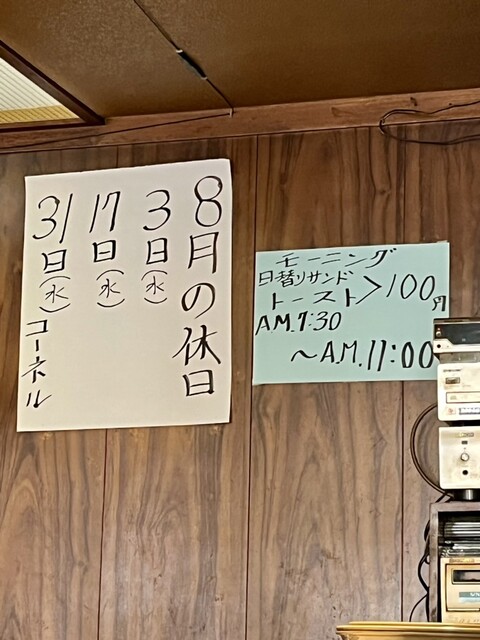 8月の休日
3日(水)
17日(水)
31日(水)
コーネル
モーニング
日替りサンド
トースト>100円
A.M.7:30
～A.M.11:00